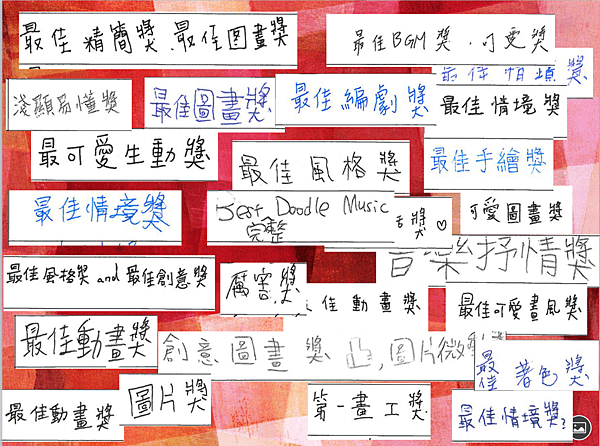 最佳精簡獎、最佳圖畫獎
最佳BGM獎、可愛獎
淺顯易懂獎
最佳圖畫獎
最佳編劇獎
最佳情境獎
最可愛生動獎
最佳風格獎
最佳手繪獎
最佳情境獎
Best Doodle Music
完整
獎♡
可愛圖畫獎
音樂抒情獎
最佳風格獎 and 最佳創意獎
厲害獎
佳動畫獎
最佳可愛畫風獎
最佳動畫獎
創意圖畫獎
圖片微動
最佳著色獎
最佳動畫獎
圖片獎
第一畫工獎
最佳情境獎?